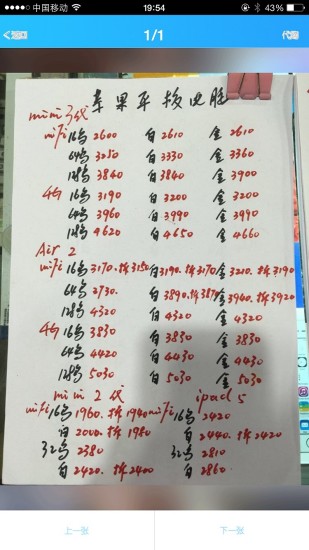 中国移动 19:54 43%
返回 1/1
苹果平板电脑
mini 3代
wifi 16G黑 2600 白 2610 金 2610
64黑 3250 白 3330 金 3360
128黑 3840 白 3840 金 3900
4G 16黑 3190 白 3200 金 3200
64黑 3960 白 3990 金 3990
128黑 4620 白 4650 金 4660
Air 2
wifi 16黑 3170.拆3150 白 3190.拆3170 金 3210.拆3190
64黑 2730 白 3890.拆3870 金 3940.拆3920
128黑 4320 白 4320 金 4320
4G 16黑 3830 白 3830 金 3830
64黑 4420 白 4430 金 4430
128黑 5030 白 5030 金 5030
mini 2代 ipad 5
wifi 16黑 1960.拆1940 wifi 16黑 2420
白 2000.拆1980 白 2440.拆2420
32黑 2380 32黑 2810
白 2420.拆2400 白 2860.
上一张 下一张